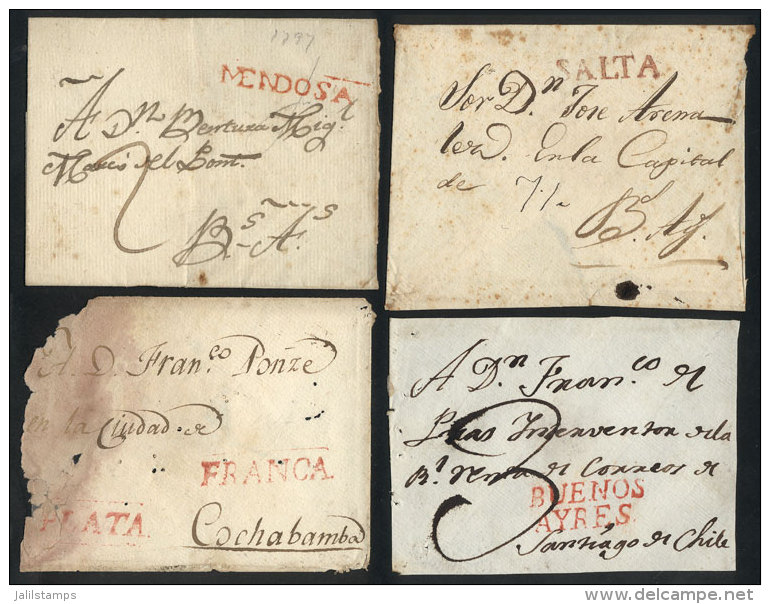 1797
MENDOSA
A Dn. Bentura Migl.
Marcó del Pont.
2
Bs. As.
SALTA
Sor Dn. Jose Arena
les. En la Capital
de
Bs. Ays.
A. D. Franco. Ponze
en la Ciudad de
FRANCA
PLATA
Cochabamba
A Dn. Franco. de
Prias Interventor de la
Rl. renta de Correos de
3
BUENOS
AYRES
Santiago de Chile
jfilastamps
delcampe.net